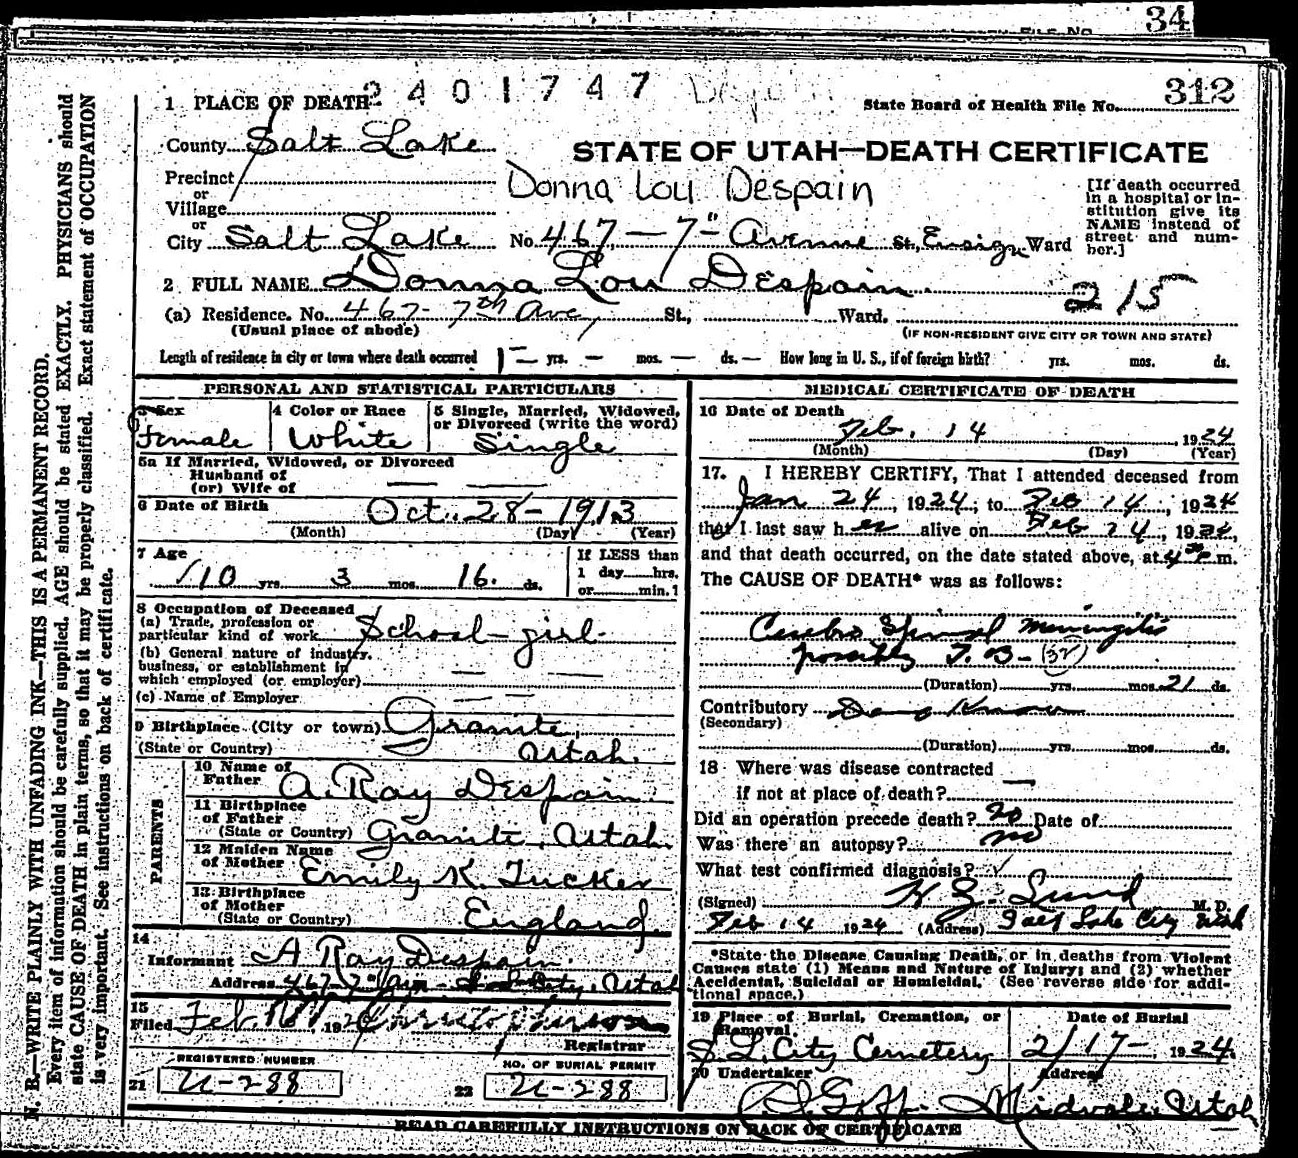 34
FILE NO.
2401747
312
1 PLACE OF DEATH
State Board of Health File No.
County Salt Lake
STATE OF UTAH—DEATH CERTIFICATE
Precinct
or
Village
Donna Lou Despain
[If death occurred in a hospital or institution give its NAME instead of street and number.]
or
City Salt Lake No. 467 — 7" Avenue St., Ensign Ward
2 FULL NAME Donna Lou Despain
215
(a) Residence. No. 467- 7th Ave, St., Ward.
(Usual place of abode)
(IF NON-RESIDENT GIVE CITY OR TOWN AND STATE)
Length of residence in city or town where death occurred 1 — yrs. — mos. — ds. — How long in U. S., if of foreign birth? yrs. mos. ds.
PERSONAL AND STATISTICAL PARTICULARS
3 Sex
Female
4 Color or Race
White
5 Single, Married, Widowed, or Divorced (write the word)
Single
5a If Married, Widowed, or Divorced
Husband of
(or) Wife of
6 Date of Birth Oct. 28 - 1913
(Month) (Day) (Year)
7 Age
10 yrs. 3 mos. 16. ds.
If LESS than
1 day hrs.
or min.?
8 Occupation of Deceased
(a) Trade, profession or
particular kind of work School-girl
(b) General nature of industry,
business, or establishment in
which employed (or employer)
(c) Name of Employer
9 Birthplace (City or town) Granite,
(State or Country) Utah.
PARENTS
10 Name of
Father A. Ray Despain.
11 Birthplace
of Father
(State or Country) Granite, Utah.
12 Maiden Name
of Mother Emily K. Tucker
13 Birthplace
of Mother
(State or Country) England
14
Informant A Ray Despain.
Address 467-7" Ave - Salt Lake City, Utah
15
Filed Feb. 192
Registrar
REGISTERED NUMBER
21 U-288
NO. OF BURIAL PERMIT
22 U-288
MEDICAL CERTIFICATE OF DEATH
16 Date of Death
Feb. 14, 1924
(Month) (Day) (Year)
17. I HEREBY CERTIFY, That I attended deceased from
Jan 24, 1924, to Feb 14, 1924
that I last saw her alive on Feb 14, 1924,
and that death occurred, on the date stated above, at 4 30 P. m.
The CAUSE OF DEATH* was as follows:
Cerebro Spinal Meningitis
possibly T.B - (32)
(Duration) yrs. mos. 21 ds.
Contributory Dont Know
(Secondary)
(Duration) yrs. mos. ds.
18 Where was disease contracted
if not at place of death?
Did an operation precede death? no Date of
Was there an autopsy? no
What test confirmed diagnosis?
(Signed) Lund M. D.
Feb 14 1924 (Address) Salt Lake City Utah
*State the Disease Causing Death, or in deaths from Violent
Causes state (1) Means and Nature of Injury; and (2) whether
Accidental, Suicidal or Homicidal. (See reverse side for addi-
tional space.)
19 Place of Burial, Cremation, or
Removal
S L. City Cemetery
Date of Burial
2/17-, 1924
20 Undertaker
Goff
Address
Midvale, Utah
READ CAREFULLY INSTRUCTIONS ON BACK OF CERTIFICATE
N. B.—WRITE PLAINLY WITH UNFADING INK—THIS IS A PERMANENT RECORD.
Every item of information should be carefully supplied. AGE should be stated EXACTLY. PHYSICIANS should
state CAUSE OF DEATH in plain terms, so that it may be properly classified. Exact statement of OCCUPATION
is very important. See instructions on back of certificate.